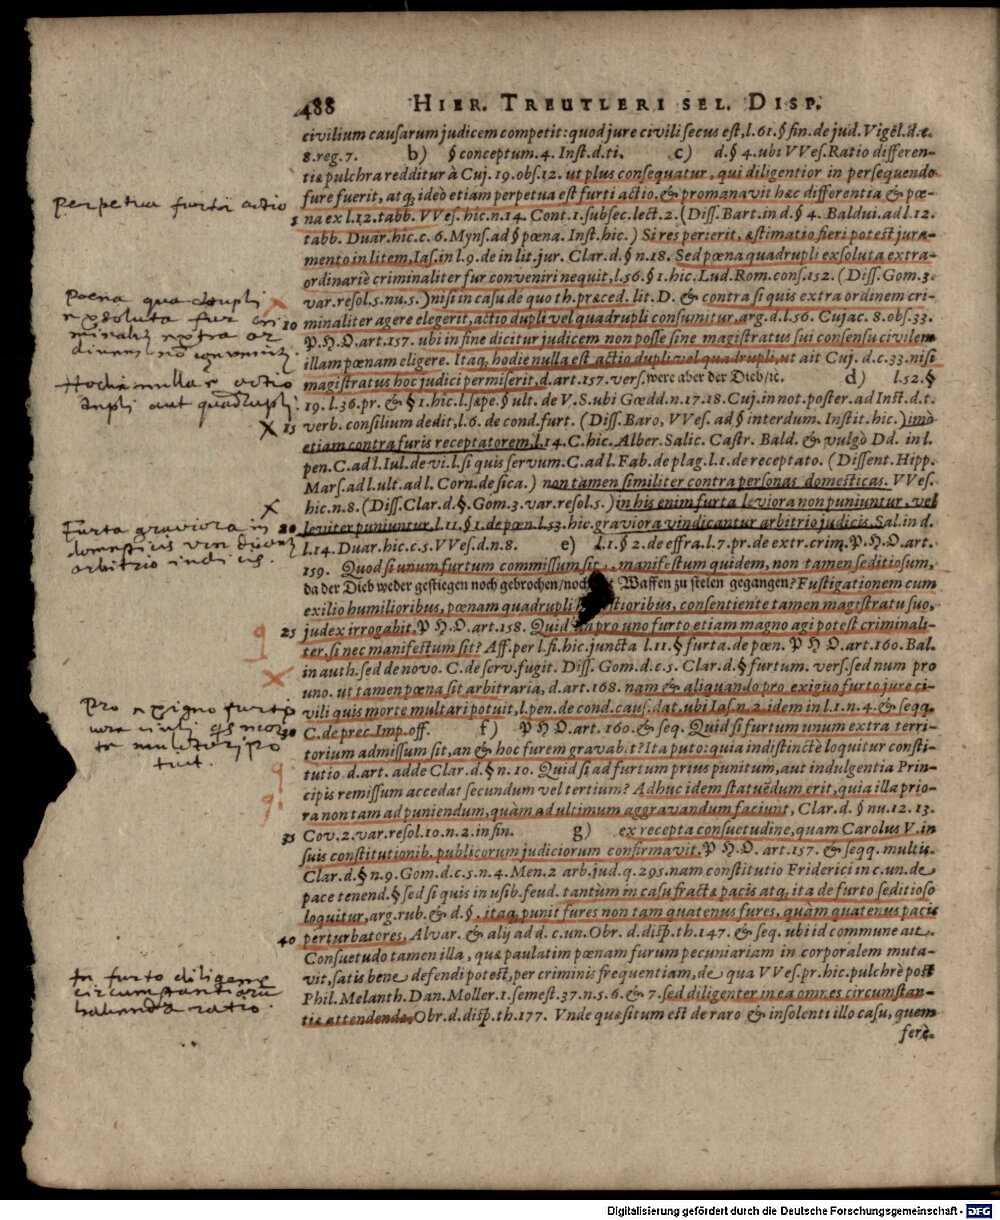 488 HIER. TREUTLERI SEL. DISP.
civilium causarum judicem competit: quod jure civili secus est, l. 61. § fin. de jud. Vigel. d. e.
8. reg. 7. b) § conceptum. 4. Inst. d. ti. c) d. § 4. ubi VVes. Ratio differen-
tiæ pulchra redditur à Cuj. 19. obs. 12. ut plus consequatur, qui diligentior in persequendo
perpetua furti actio
fure fuerit, atq; ideò etiam perpetua est furti actio. & promanavit hæc differentia & pœ-
5 na ex l. 12. tabb. VVes. hic. n. 14. Cont. 1. subsec. lect. 2. (Diss. Bart. in d. § 4. Baldui. ad l. 12.
tabb. Duar. hic. c. 6. Myns. ad § pœna. Inst. hic.) Si res perierit, æstimatio fieri potest jura-
mento in litem, Ias. in l. 9. de in lit. jur. Clar. d. § n. 18. Sed pœna quadrupli exsoluta extra-
ordinariè criminaliter fur conveniri nequit, l. 56. § 1. hic. Lud. Rom. cons. 152. (Diss. Gom. 3.
Poena quadrupli
exsoluta fur cri
minaliter extra or
dinem no
var. resol. 5. nu. 5.) nisi in casu de quo th. præced. lit. D. & contra si quis extra ordinem cri-
10 minaliter agere elegerit, actio dupli vel quadrupli consumitur, arg. d. l. 56. Cujac. 8. obs. 33.
P. H. O. art. 157. ubi in fine dicitur judicem non posse sine magistratus sui consensu civilem
illam pœnam eligere. Itaq; hodie nulla est actio dupli vel quadrupli, ut ait Cuj. d. c. 33. nisi
Hodie nulla e actio
dupli aut quadrupli.
magistratus hoc judici permiserit, d. art. 157. vers. were aber der Dieb/ic. d) l. 52. §
19. l. 36. pr. & § 1. hic. l. sæpe. § ult. de V. S. ubi Gœdd. n. 17. 18. Cuj. in not. poster. ad Inst. d. t.
X 15 verb. consilium dedit, l. 6. de cond. furt. (Diss. Baro, VVes. ad § interdum. Instit. hic.) imò
etiam contra furis receptatorem, l. 14. C. hic. Alber. Salic. Castr. Bald. & vulgò Dd. in l.
pen. C. ad l. Iul. de vi. l. si quis servum. C. ad l. Fab. de plag. l. 1. de receptato. (Dissent. Hipp.
Mars. ad l. ult. ad l. Corn. de sica.) non tamen similiter contra personas domesticas. VVes.
X
hic. n. 8. (Diss. Clar. d. §. Gom. 3. var. resol. 5.) in his enim furta leviora non puniuntur, vel
Furta graviora in
domesticis
arbitrio iudicis.
20 leviter puniuntur, l. 11. § 1. de pœn. l. 53. hic. graviora vindicantur arbitrio judicis. Sal. in d.
l. 14. Duar. hic. c. 5. VVes. d. n. 8. e) l. 1. § 2. de effra. l. 7. pr. de extr. crim. P. H. O. art.
159. Quod si unum furtum commissum sit, manifestum quidem, non tamen seditiosum,
da der Dieb weder gestiegen noch gebrochen/noch Waffen zu stelen gegangen? Fustigationem cum
exilio humilioribus, pœnam quadrupli stioribus, consentiente tamen magistratu suo,
25 judex irrogabit. P H. O. art. 158. Quid an pro uno furto etiam magno agi potest criminali-
ter, si nec manifestum sit? Aff. per l. fi. hic. juncta l. 11. § furta. de pœn. P H O. art. 160. Bal.
in auth. sed de novo. C. de serv. fugit. Diss. Gom. d. c. 5. Clar. d. § furtum. vers. sed num pro
uno. ut tamen pœna sit arbitraria, d. art. 168. nam & aliquando pro exiguo furto jure ci-
Pro exiguo furto
iure civili qs mor
te mulctari po
tuit.
vili quis morte multari potuit, l. pen. de cond. caus. dat. ubi Ias. n. 2. idem in l. 1. n. 4. & seqq.
30 C. de prec. Imp. off. f) P H O. art. 160. & seq. Quid si furtum unum extra terri-
torium admissum sit, an & hoc furem gravabit? Ita puto: quia indistinctè loquitur consti-
tutio d. art. adde Clar. d. § n. 10. Quid si ad furtum prius punitum, aut indulgentia Prin-
cipis remissum accedat secundum vel tertium? Adhuc idem statuēdum erit, quia illa prio-
ra non tam ad puniendum, quàm ad ultimum aggravandum faciunt, Clar. d. § nu. 12. 13.
35 Cov. 2. var. resol. 10. n. 2. in fin. g) ex recepta consuetudine, quam Carolus V. in
suis constitutionib. publicorum judiciorum confirmavit. P H. O. art. 157. & seqq. multis.
Clar. d. § n. 9. Gom. d. c. 5. n. 4. Men. 2 arb. jud. q. 295. nam constitutio Friderici in c. un. de
pace tenend. § sed si quis in usib. feud. tantùm in casu fractæ pacis atq; ita de furto seditioso
loquitur, arg. rub. & d. §. itaq; punit fures non tam quatenus fures, quàm quatenus pacis
40 perturbatores, Alvar. & alij ad d. c. un. Obr. d. disp. th. 147. & seq. ubi id commune ait.
Consuetudo tamen illa, quæ paulatim pœnam furum pecuniariam in corporalem muta-
In furto diligens
circumstantiaru
habenda ratio.
vit, satis bene defendi potest, per criminis frequentiam, de qua VVes. pr. hic. pulchrè post
Phil. Melanth. Dan. Moller. 1. semest. 37. n. 5. 6. & 7. sed diligenter in ea omnes circumstan-
tiæ attendendæ, Obr. d. disp. th. 177. Vnde quæsitum est de raro & insolenti illo casu, quem
ferè
Digitalisierung gefördert durch die Deutsche Forschungsgemeinschaft - DFG